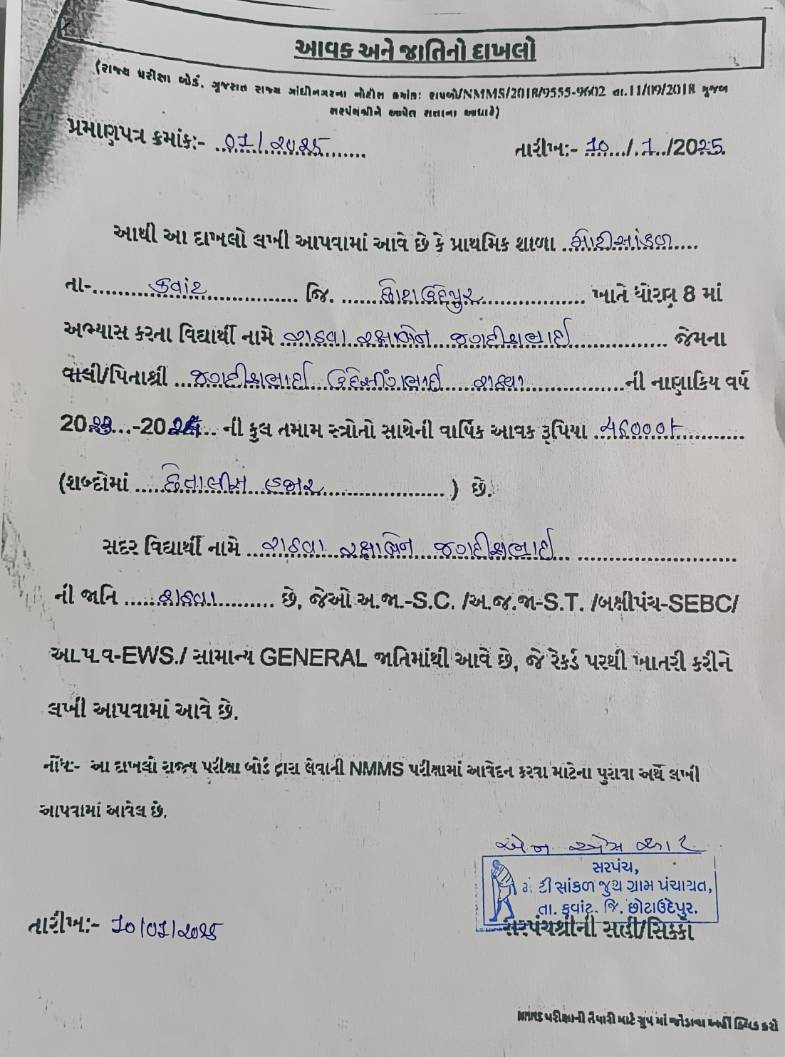 આવક અને જાતિનો દાખલો
(રાજ્ય પરીક્ષા બોર્ડ, ગુજરાત રાજ્ય ગાંધીનગરના નોટીસ ક્રમાંક: રાપબો/NMMS/2018/9555-9602 તા.11/09/2018 મુજબ
સરપંચશ્રીને આપેલ સત્તાના આધારે)
પ્રમાણપત્ર ક્રમાંક:- ..01/2025........
તારીખ:- 10.../.1../2025.
આથી આ દાખલો લખી આપવામાં આવે છે કે પ્રાથમિક શાળા ..મોટીસાંકળ....
તા-.........કવાંટ............... જિ. ......છોટાઉદેપુર............... ખાતે ધોરણ 8 માં
અભ્યાસ કરતા વિદ્યાર્થી નામે ..રાઠવા રક્ષાબેન જગદીશભાઈ.............. જેમના
વાલી/પિતાશ્રી ...જગદીશભાઈ રાઠવા..............ની નાણાકિય વર્ષ
2023...-2024... ની કુલ તમામ સ્ત્રોતો સાથેની વાર્ષિક આવક રૂપિયા ..46000/-...........
(શબ્દોમાં ....છેતાલીસ હજાર..................) છે.
સદર વિદ્યાર્થી નામે ..રાઠવા રક્ષાબેન જગદીશભાઈ.......................
ની જાતિ ......રાઠવા.......... છે, જેઓ અ.જા.-S.C. /અ.જ.જા-S.T. /બક્ષીપંચ-SEBC/
આ.પ.વ-EWS./ સામાન્ય GENERAL જાતિમાંથી આવે છે, જે રેકર્ડ પરથી ખાતરી કરીને
લખી આપવામાં આવે છે.
નોંધ:- આ દાખલો રાજ્ય પરીક્ષા બોર્ડ દ્વારા લેવાની NMMS પરીક્ષામાં આવેદન કરવા માટેના પુરાવા અર્થે લખી
આપવામાં આવેલ છે.
એન એસ આર
સરપંચ,
મોટી સાંકળ જુથ ગ્રામ પંચાયત,
તા. કવાંટ. જિ. છોટાઉદેપુર.
તારીખ:- 10/01/2025
સરપંચશ્રીની સહી/સિક્કો
NMMS પરીક્ષાની તૈયારી માટે ગ્રુપ માં જોડાવા અહીં ક્લિક કરો